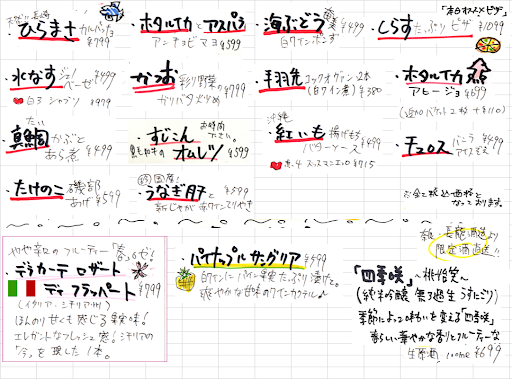 ・ひらまさ カルパッチョ ¥799
・ホタルイカとアスパラ アンチョビマヨ ¥599
・海ぶどう ¥499
白ワインポンズ
「本日オススメピザ」
・しらす たっぷりピザ ¥1099
・水なす ジェノベーゼ ¥499
・かつお 彩り野菜の ¥799
・手羽先 コックオヴァン 2本
(白ワイン煮) ¥380
・ホタルイカ
アヒージョ ¥699
(追加バケット2枚 +¥110)
・真鯛 かぶと あら煮 ¥499
・すじこん お時間下さい。
オムレツ ¥599
沖縄
・紅いも 揚げもち ¥499
バターソース
・チュロス バニラアイス ¥499
・たけのこ 磯部あげ ¥599
・うなぎ肝と ¥599
新じゃが 赤ワインてりやき
お会計税込価格と
なっております。
やや辛口のフルーティー「泡」ロゼ!
・デ カーテ ロザート
ディ フラッパート ¥799
(イタリア・シチリア州)
ほんのり甘くも感じる果実味!
エレガントなフレッシュ感!シチリアの
「今」を表現した1本。
・パイナップルサングリア ¥599
白ワインにパイン果実たっぷり漬けた
爽やかな甘味のワインカクテル♪
限定酒
「四季咲」
(純米吟醸 無ろ過生 うすにごり)
季節によって味わいを変える「四季咲」
春らしい華やかな香りとフルーティーな
生原酒 100ml ¥699